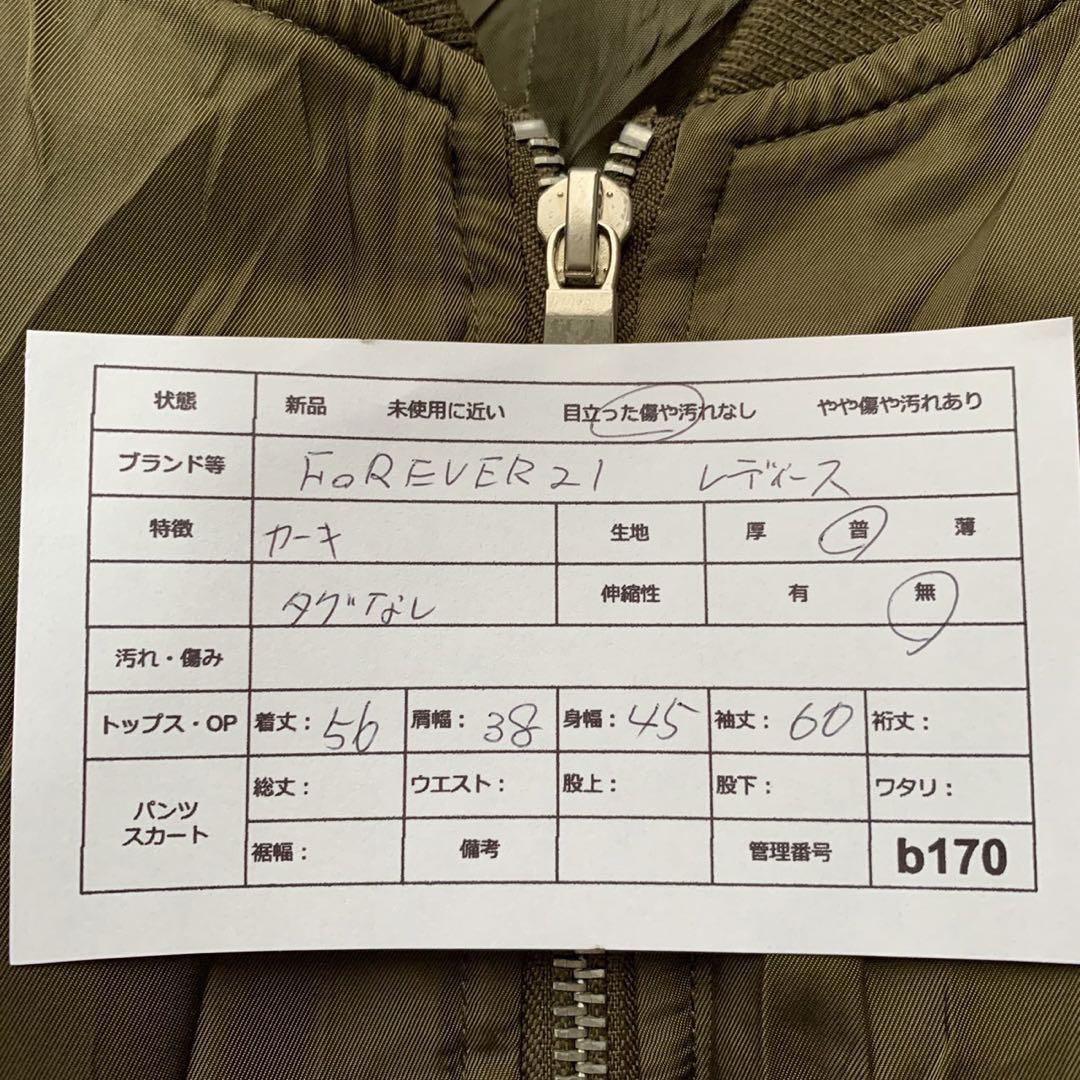 状態 新品 未使用に近い 目立った傷や汚れなし やや傷や汚れあり
ブランド等 FOREVER21 レディース
特徴 カーキ 生地 厚 普 薄
タグなし 伸縮性 有 無
汚れ・傷み
トップス・OP 着丈：56 肩幅：38 身幅：45 袖丈：60 裄丈：
パンツ スカート 総丈： ウエスト： 股上： 股下： ワタリ：
裾幅： 備考 管理番号 b170